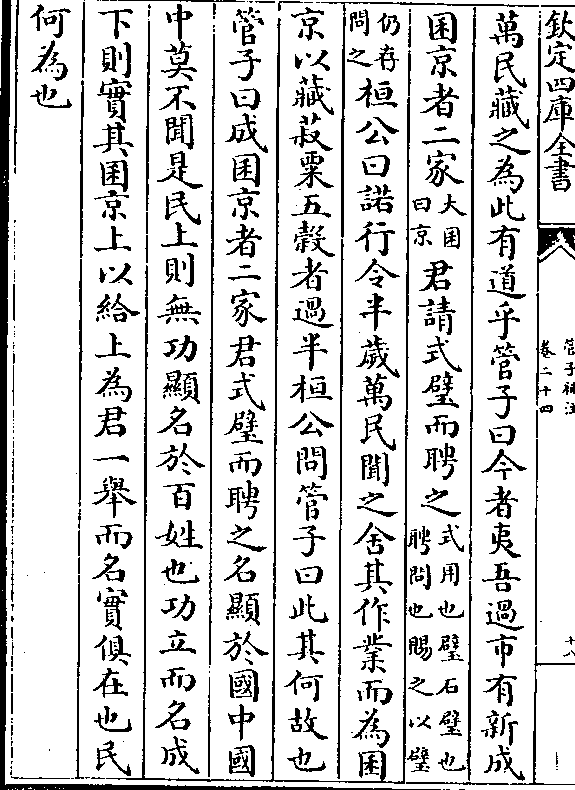 欽定四庫全書
管子補注
卷二十四
十八
萬民藏之為此有道乎管子曰今者夷吾過市有新成
囷京者二家大囷曰京君請式璧而聘之式用也璧石璧也聘問也賜之以璧
仍存問之桓公曰諾行令半歲萬民聞之舍其作業而為囷
京以藏菽粟五穀者過半桓公問管子曰此其何故也
管子曰成囷京者二家君式璧而聘之名顯於國中國
中莫不聞是民上則無功顯名於百姓也功立而名成
下則實其囷京上以給上為君一舉而名實俱在也民
何為也